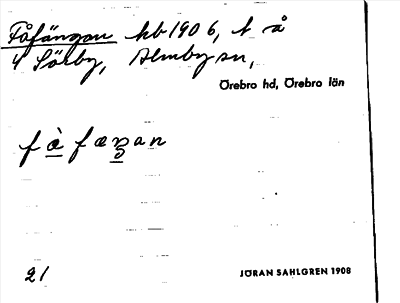 Fåfängan hb 1906, t å
4 Sörby, Almby sn,
Örebro hd, Örebro län
21
JÖRAN SAHLGREN 1908